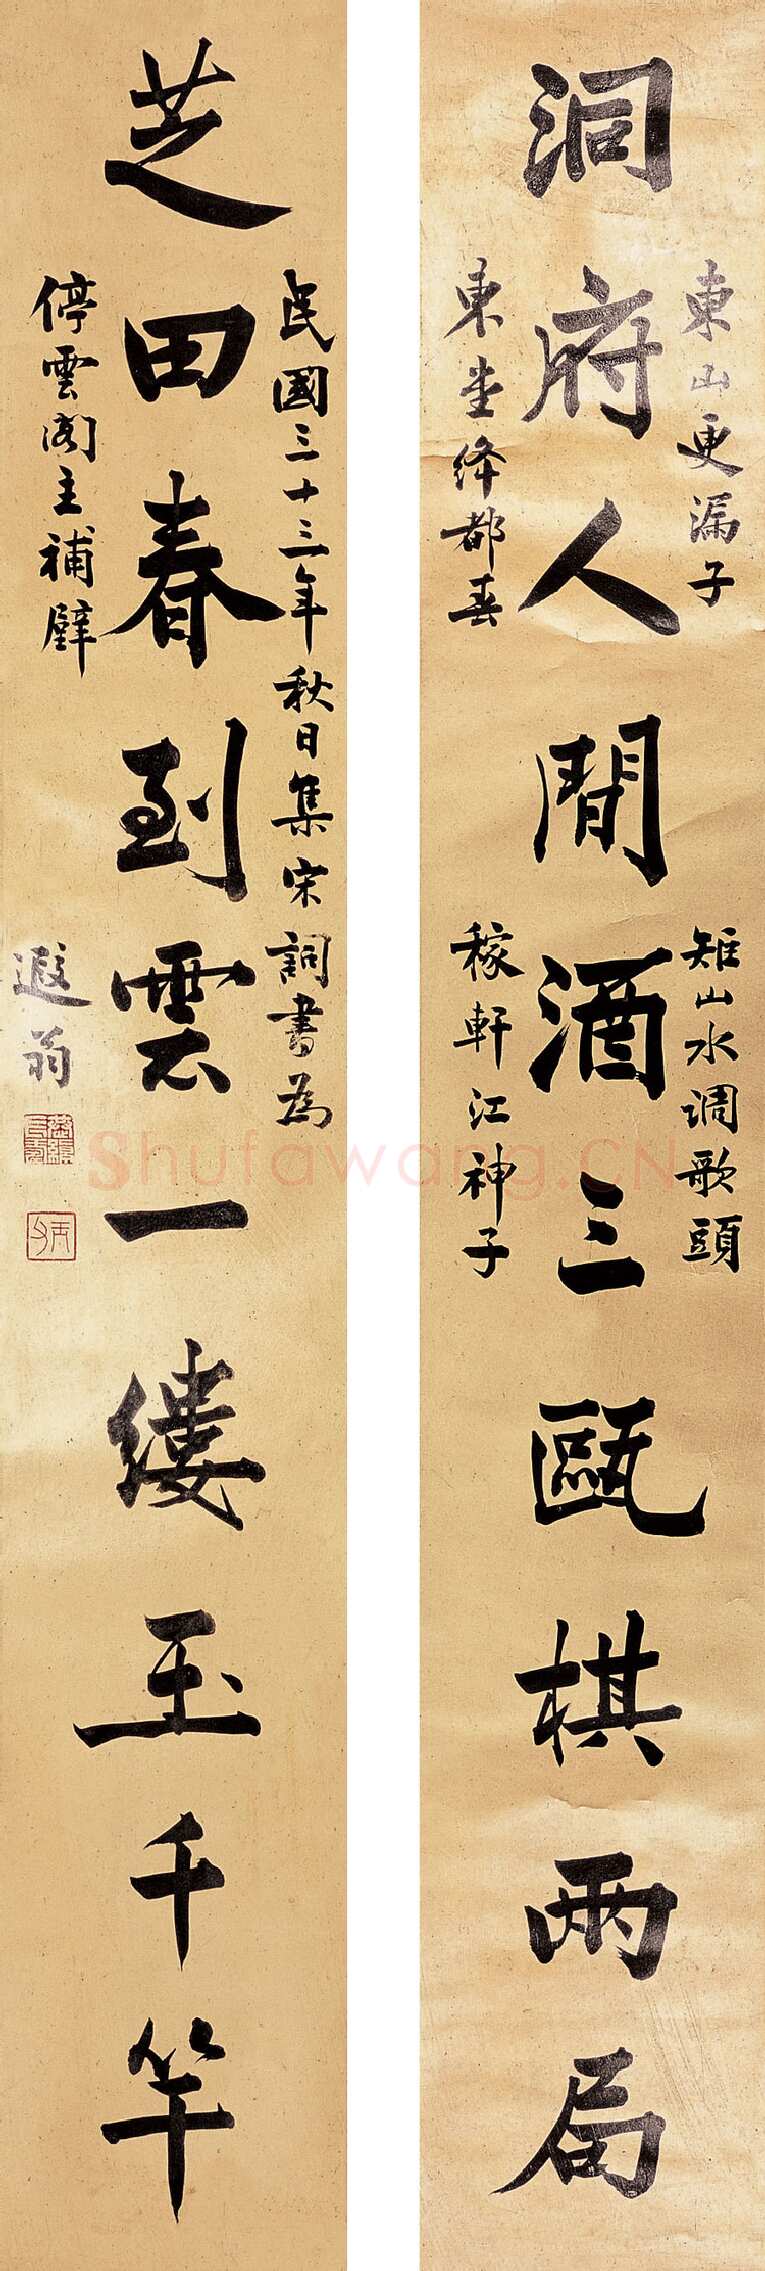 洞府人間酒三甌棋兩局
東山更漏子
矩山水調歌頭
東堂絳都春
稼軒江神子
芝田春到雲一縷玉千竿
民國三十三年秋日集宋詞書為
停雲閣主補壁
遐翁
Shufawang.CN